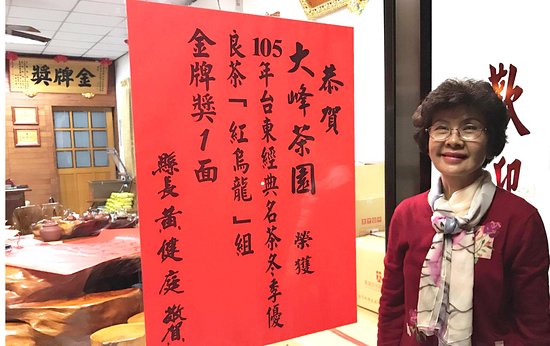 恭賀
大峰茶園 榮獲
105年台東經典名茶冬季優
良茶「紅烏龍」組
金牌獎1面
縣長黃健庭 敬賀
獎牌金
歡迎